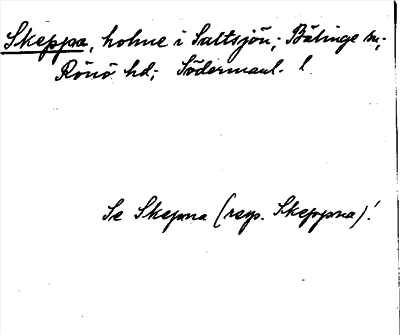 Skeppa, holme i Saltsjön; Bälinge sn;
Rönö hd; Södermanl. l.
Se Skepna (resp. Skeppna)!